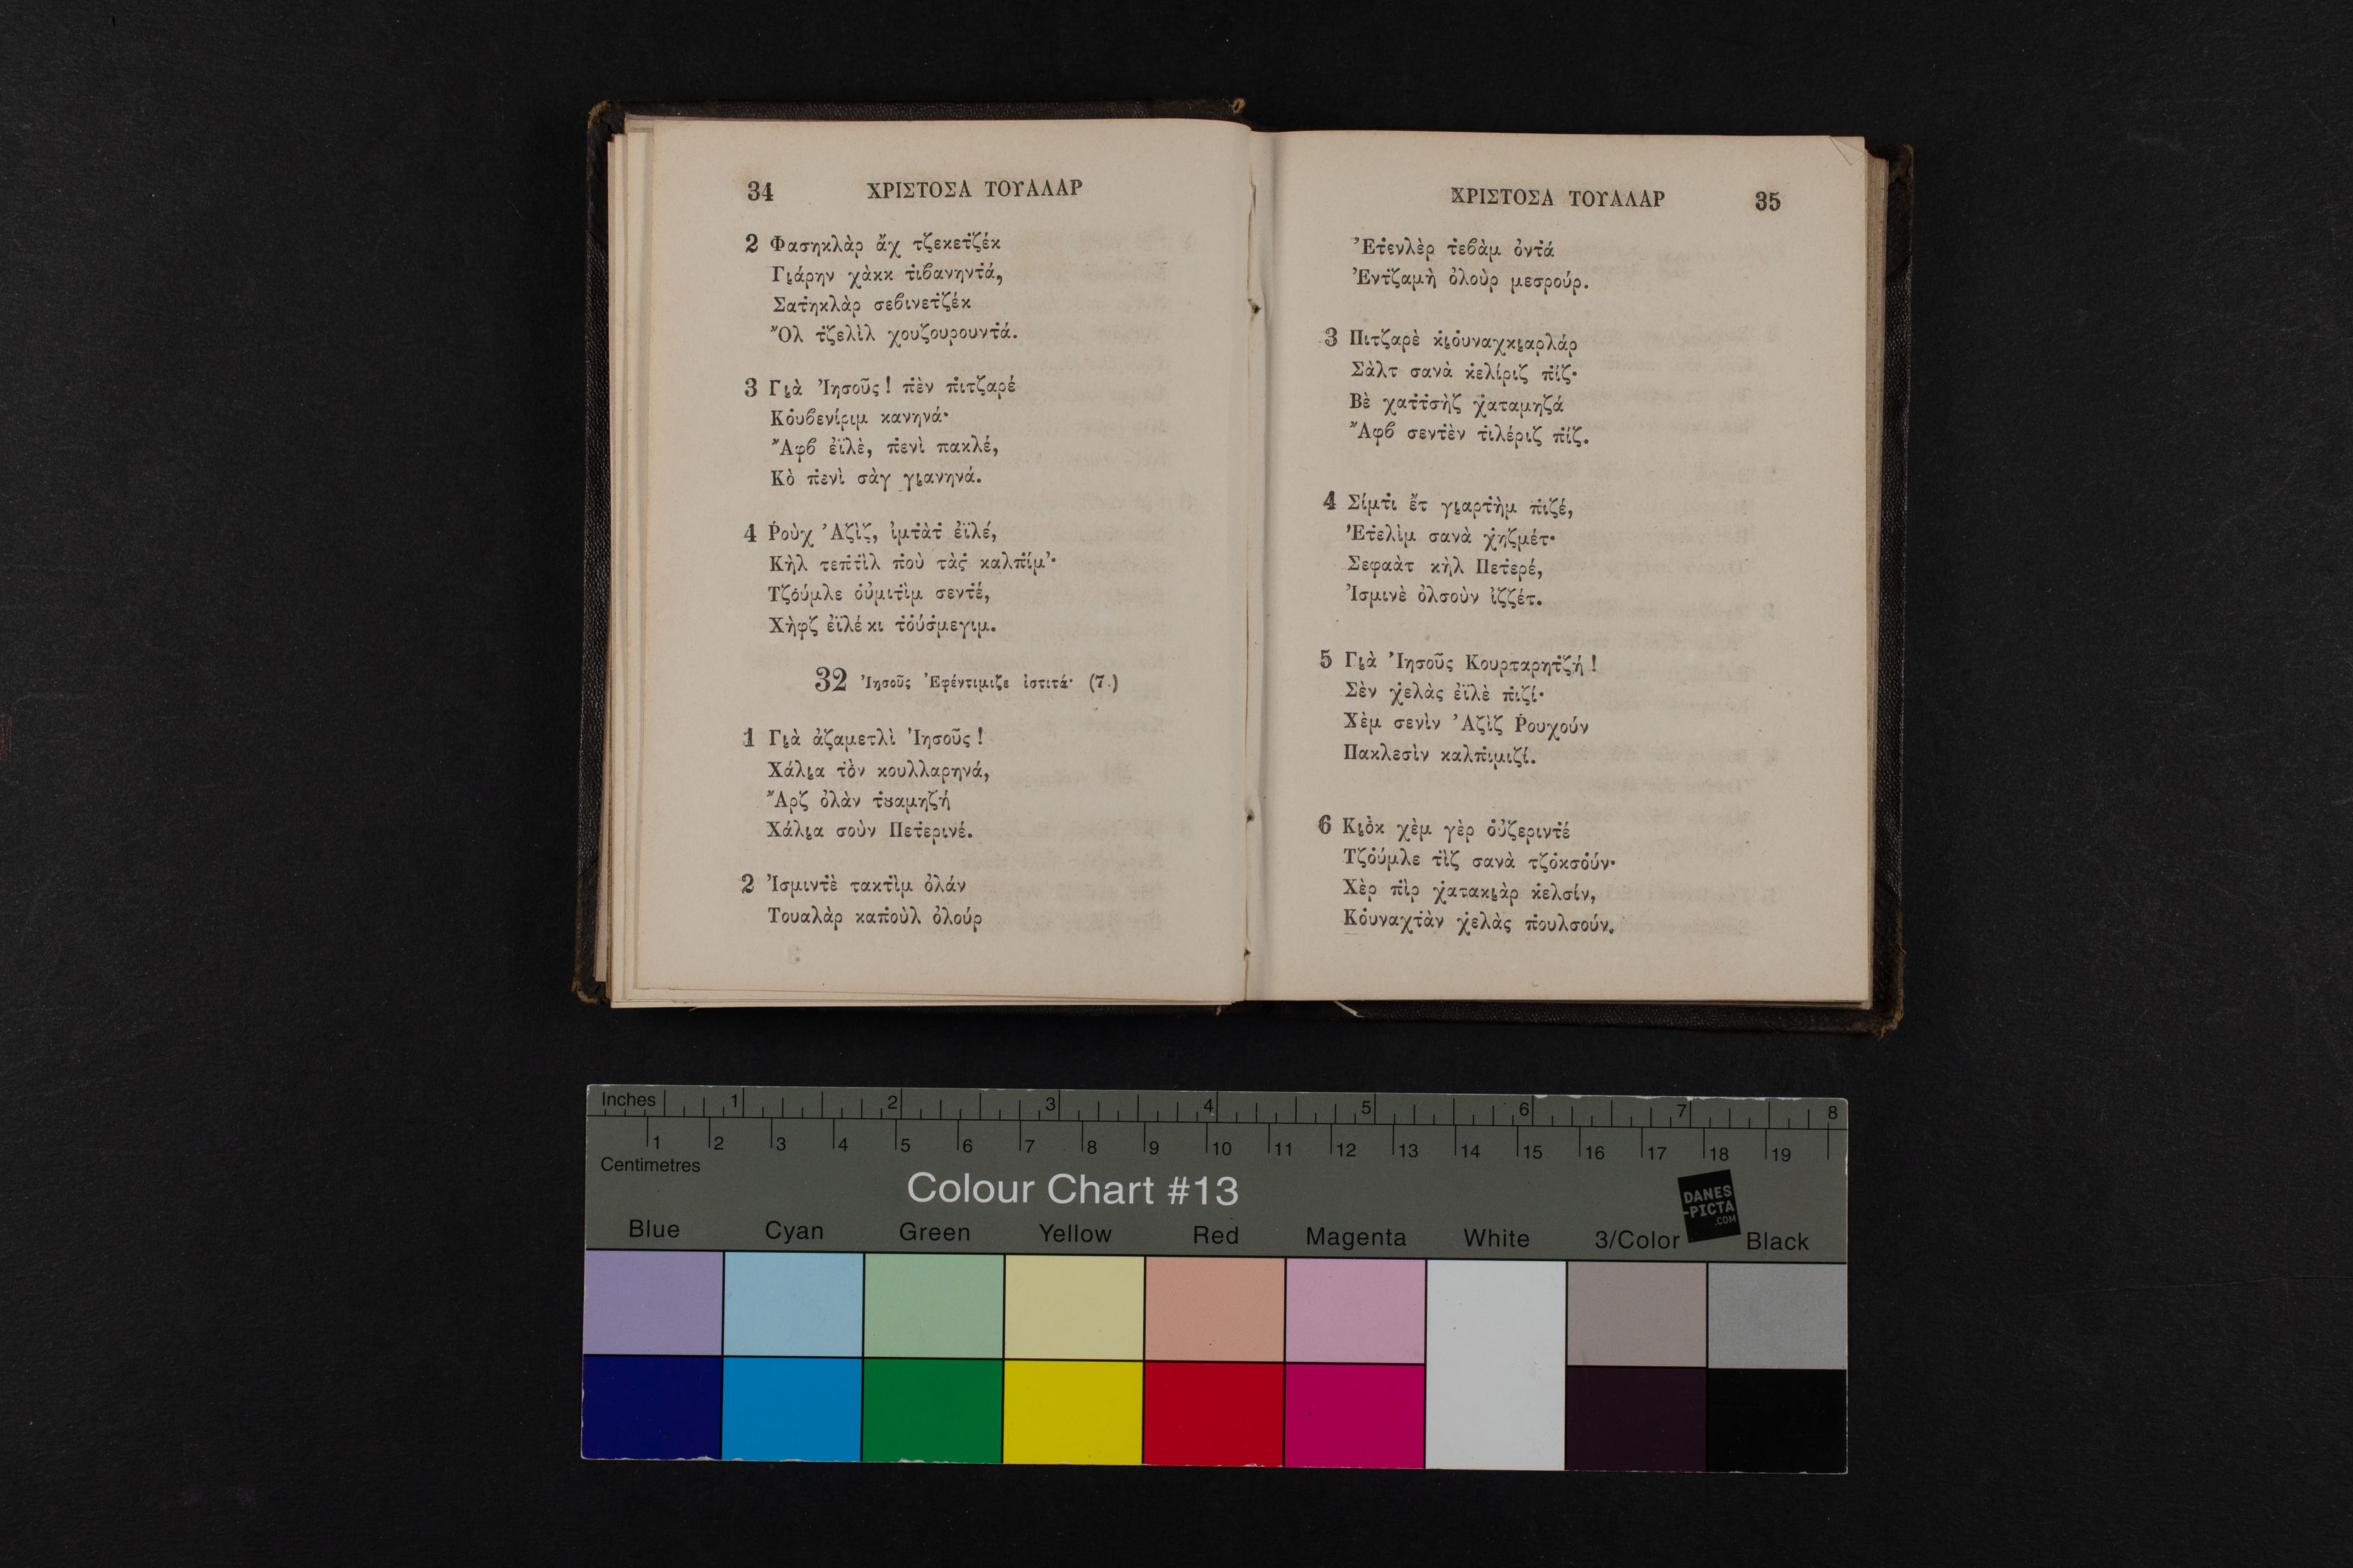 34 ΧΡΙΣΤΟΣΑ ΤΟΥΑΛΑΡ
2 Φασηκλὰρ ἄχ τζεκετζέκ
Γιάρην χὰκκ τιβανηντά,
Σατηκλὰρ σεβινετζέκ
Ὂλ τζελὶλ χουζουρουντά.
3 Γιὰ Ἰησοῦς! πὲν πιτζαρέ
Κουβενίριμ κανηνά·
Ἄφβ ἐϊλὲ, πενὶ πακλέ,
Κὸ πενὶ σὰγ γιανηνά.
4 Ῥοὺχ Ἀζὶζ, ἰμτὰτ ἐϊλέ,
Κὴλ τεπτὶλ ποὺ τὰς καλπίμ᾽·
Τζούμλε οὐμιτὶμ σεντέ,
Χὴφζ ἐϊλέ κι τούσμεγιμ.
32 Ἰησοῦς Ἐφέντιμιζε ἰστιτά· (7.)
1 Γιὰ ἀζαμετλὶ Ἰησοῦς!
Χάλια τὸν κουλλαρηνά,
Ἄρζ ὀλὰν τȣαμηζή
Χάλια σοὺν Πετερινέ.
2 Ἰσμιντὲ τακτὶμ ὀλάν
Τουαλὰρ καποὺλ ὀλούρ
ΧΡΙΣΤΟΣΑ ΤΟΥΑΛΑΡ 35
Ἐτενλὲρ τεβὰμ ὀντά
Ἐντζαμὴ ὀλοὺρ μεσρούρ.
3 Πιτζαρὲ κιουναχκιαρλάρ
Σὰλτ σανὰ κελίριζ πίζ·
Βὲ χαττσὴζ χαταμηζά
Ἄφβ σεντὲν τιλέριζ πίζ.
4 Σίμτι ἔτ γιαρτὴμ πιζέ,
Ἐτελὶμ σανὰ χηζμέτ·
Σεφαὰτ κὴλ Πετερέ,
Ἰσμινὲ ὀλσοὺν ἰζζέτ.
5 Γιὰ Ἰησοῦς Κουρταρητζή!
Σὲν χελὰς ἐϊλὲ πιζί·
Χὲμ σενὶν Ἀζὶζ Ῥουχούν
Πακλεσὶν καλπιμιζί.
6 Κιὸκ χὲμ γὲρ οὐζεριντέ
Τζούμλε τὶζ σανὰ τζοκσούν·
Χὲρ πὶρ χατακιὰρ κελσίν,
Κουναχτὰν χελὰς πουλσούν.
Inches 1 2 3 4 5 6 7 8
1 2 3 4 5 6 7 8 9 10 11 12 13 14 15 16 17 18 19
Centimetres
Colour Chart #13
DANES
-PICTA
.COM
Blue Cyan Green Yellow Red Magenta White 3/Color Black